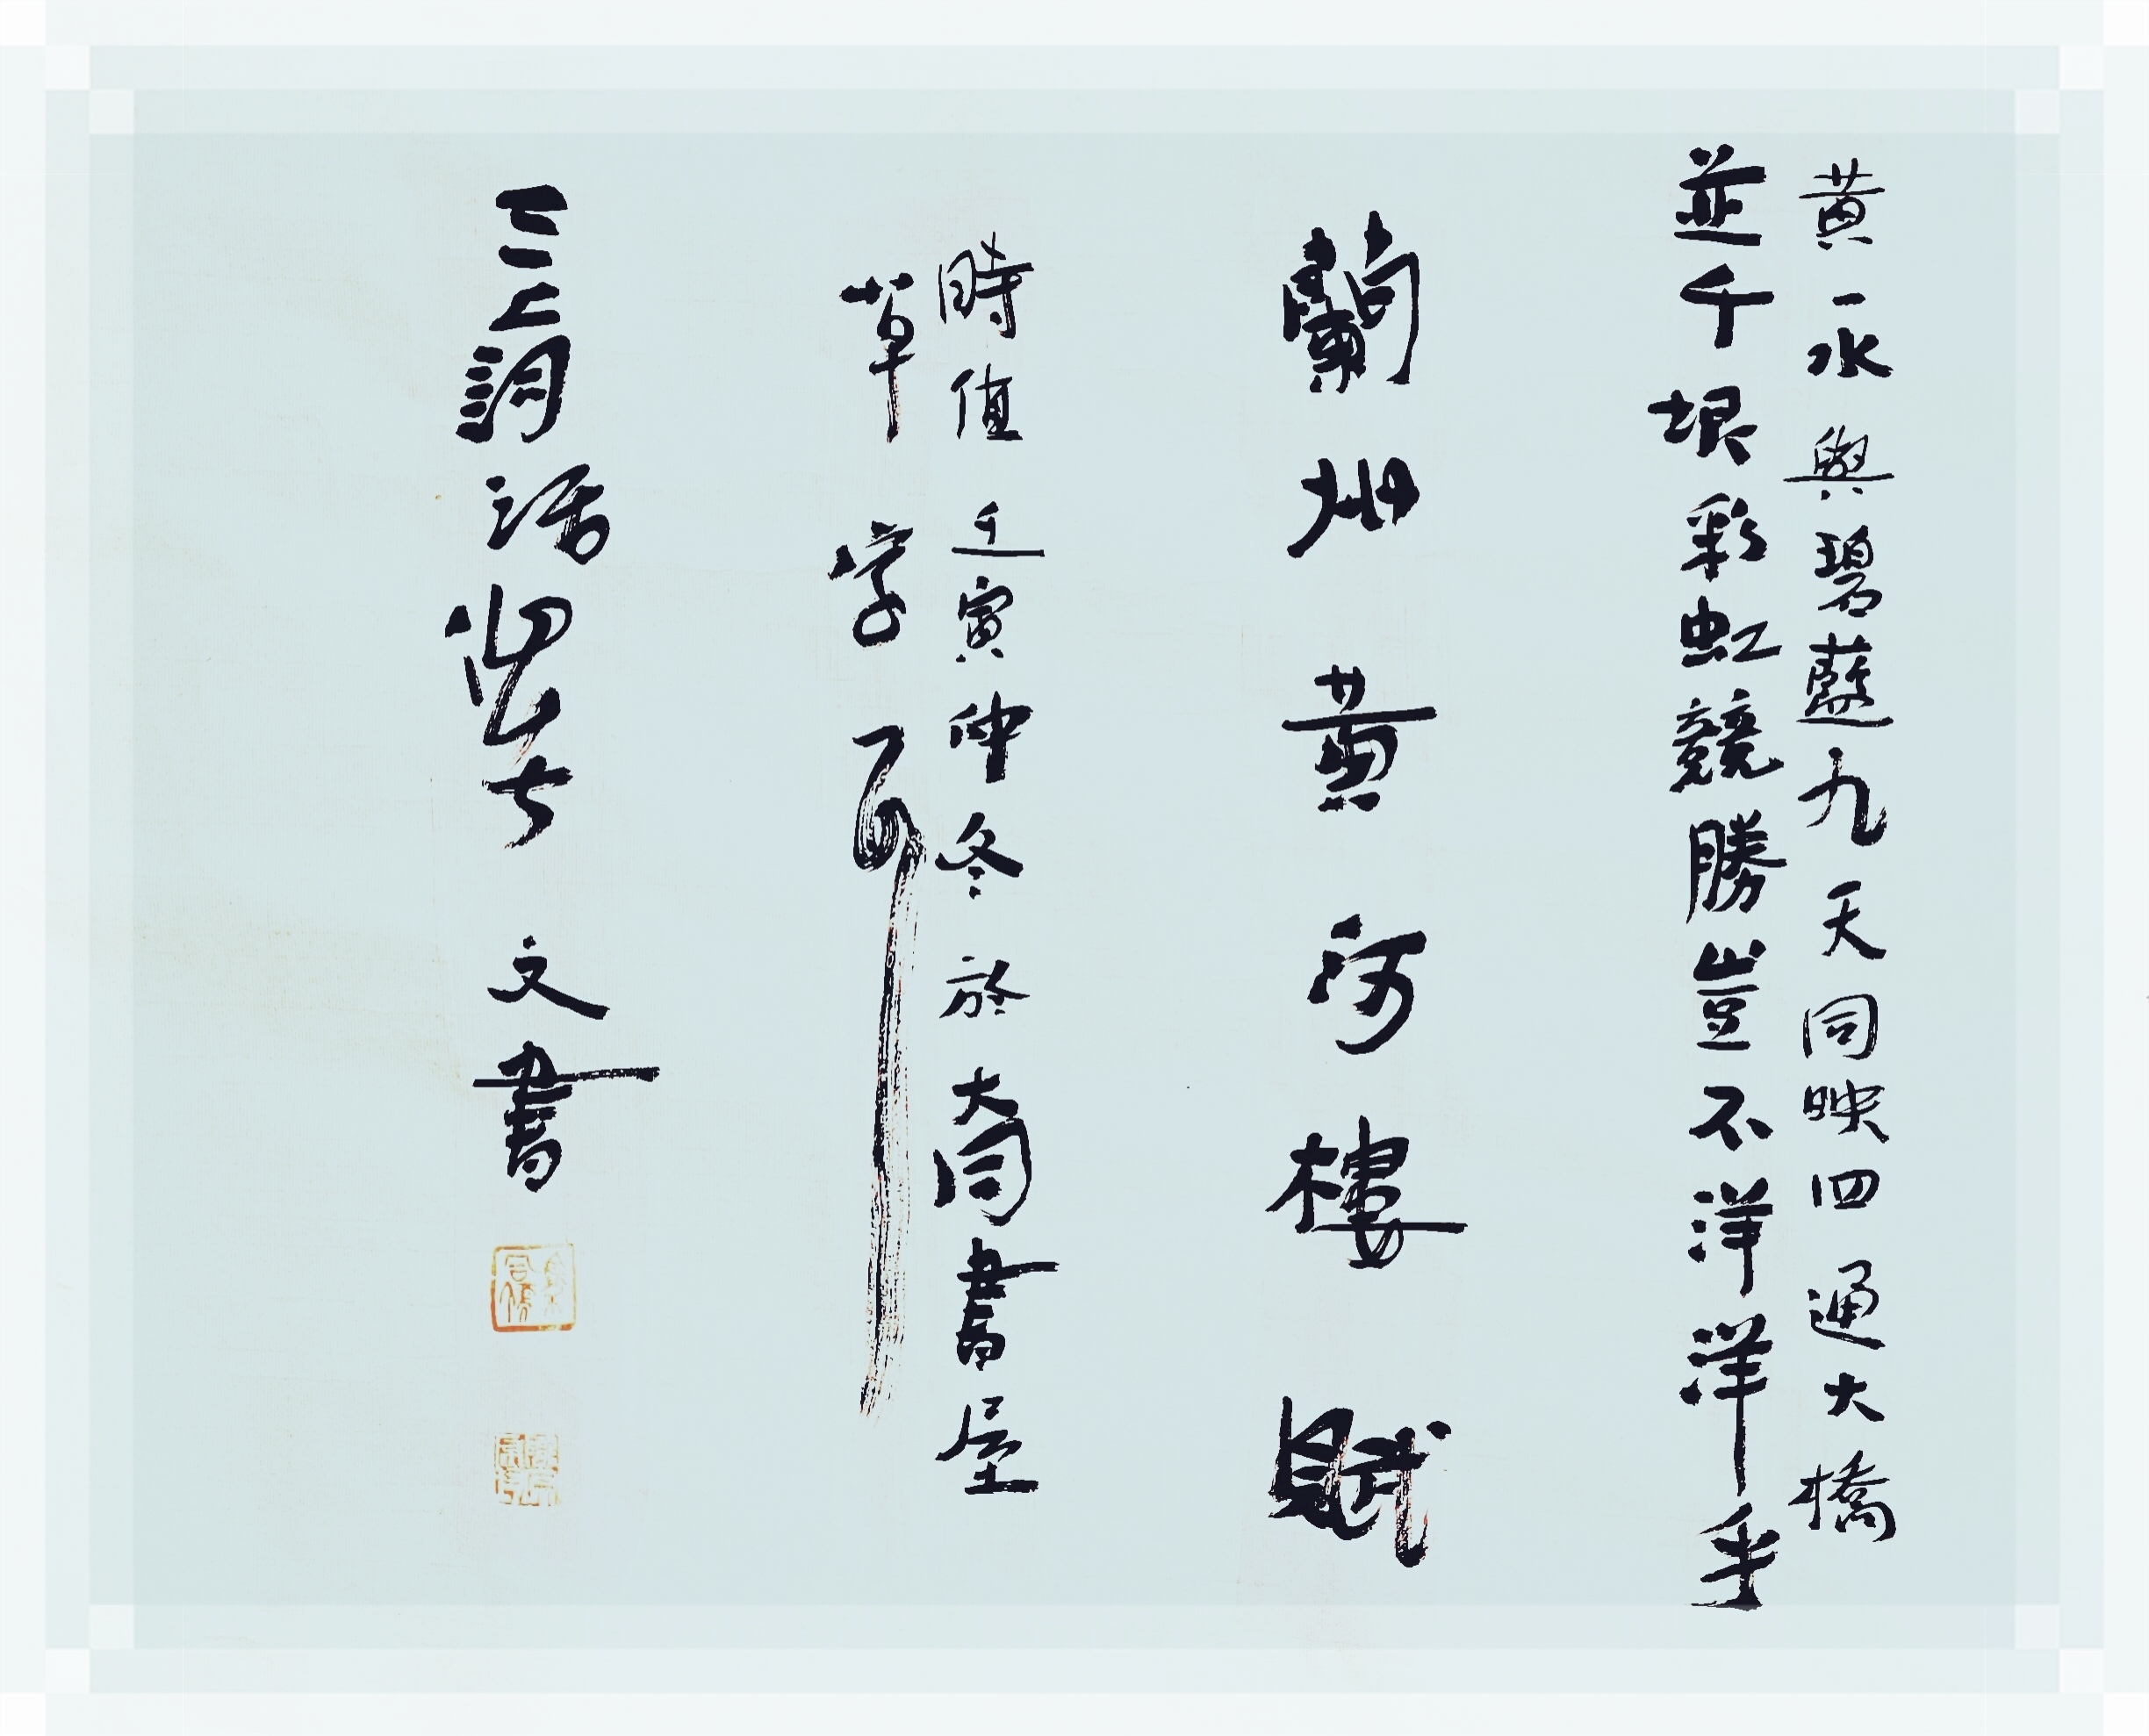 黃一水與碧藍九天同映四通大橋
並千垠彩虹競勝豈不洋洋乎
蘭州黃河樓賦
時值壬寅仲冬於大同書屋
草字
三上詞話 文書